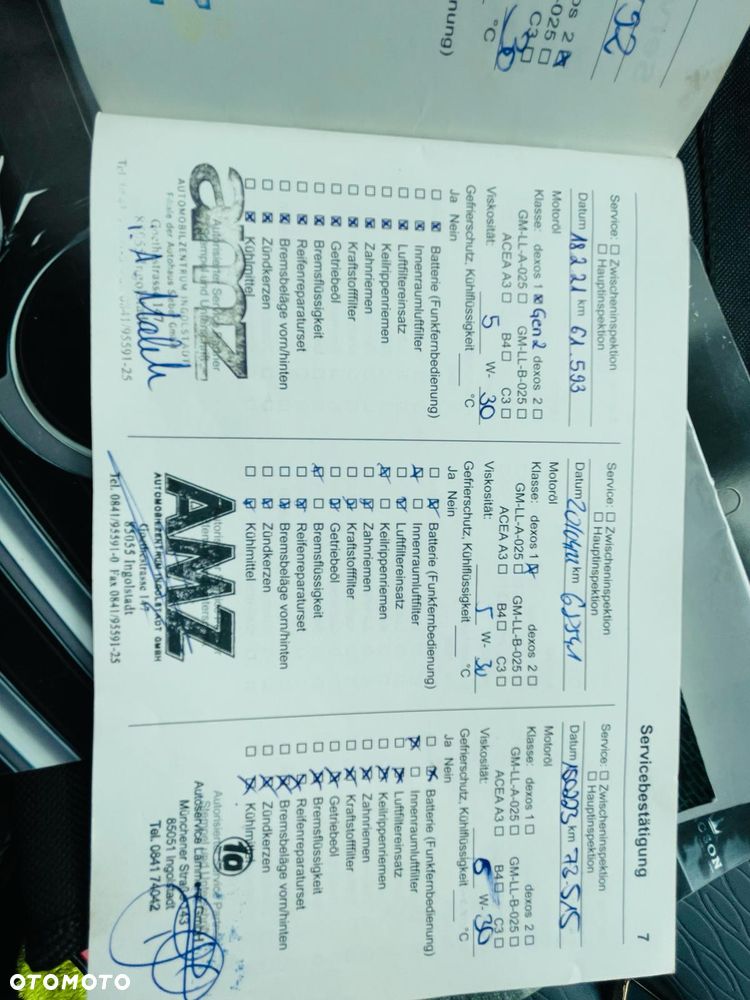 Servicebestätigung
7
Service: ☐ Zwischeninspektion
☐ Hauptinspektion
Datum 18 2 21 km 61.593
Motoröl
Klasse: dexos 1 ☒ Gen 2 dexos 2 ☐
GM-LL-A-025 ☐ GM-LL-B-025 ☐
ACEA A3 ☐ B4 ☐ C3 ☐
Viskosität: 5 W- 30
Gefrierschutz, Kühlflüssigkeit °C
Ja Nein
☐ ☒ Batterie (Funkfernbedienung)
☐ ☒ Innenraumluftfilter
☐ ☒ Luftfiltereinsatz
☐ ☒ Keilrippenriemen
☐ ☒ Zahnriemen
☐ ☒ Kraftstofffilter
☐ ☒ Getriebeöl
☐ ☒ Bremsflüssigkeit
☐ ☒ Reifenreparaturset
☐ ☒ Bremsbeläge vorn/hinten
☐ ☒ Zündkerzen
☐ ☒ Kühlmittel
Autorisierter Service Partner
AUTOMOBILZENTRUM INGOLSTADT
Filiale der Autohaus
0841/95591-25
Service: ☐ Zwischeninspektion
☐ Hauptinspektion
Datum km
Motoröl
Klasse: dexos 1 ☒ dexos 2 ☐
GM-LL-A-025 ☐ GM-LL-B-025 ☐
ACEA A3 ☐ B4 ☐ C3 ☐
Viskosität: 5 W- 30
Gefrierschutz, Kühlflüssigkeit °C
Ja Nein
☐ ☒ Batterie (Funkfernbedienung)
☒ ☐ Innenraumluftfilter
☐ ☒ Luftfiltereinsatz
☒ ☐ Keilrippenriemen
☐ ☒ Zahnriemen
☐ ☒ Kraftstofffilter
☐ ☒ Getriebeöl
☒ ☐ Bremsflüssigkeit
☐ ☒ Reifenreparaturset
☐ ☒ Bremsbeläge vorn/hinten
☐ ☒ Zündkerzen
☐ ☒ Kühlmittel
AMZ
AUTOMOBILZENTRUM INGOLSTADT GMBH
85055 Ingolstadt
Tel 0841/95591-0 Fax 0841/95591-25
Service: ☐ Zwischeninspektion
☐ Hauptinspektion
Datum 150223 km 72515
Motoröl
Klasse: dexos 1 ☐ dexos 2 ☐
GM-LL-A-025 ☐ GM-LL-B-025 ☐
ACEA A3 ☐ B4 ☐ C3 ☐
Viskosität: 5 W- 30
Gefrierschutz, Kühlflüssigkeit °C
Ja Nein
☐ ☒ Batterie (Funkfernbedienung)
☒ ☐ Innenraumluftfilter
☐ ☒ Luftfiltereinsatz
☐ ☒ Keilrippenriemen
☐ ☒ Zahnriemen
☐ ☒ Kraftstofffilter
☐ ☒ Getriebeöl
☐ ☒ Bremsflüssigkeit
☐ ☒ Reifenreparaturset
☐ ☒ Bremsbeläge vorn/hinten
☐ ☒ Zündkerzen
☐ ☒ Kühlmittel
1a
Münchener Straße 143
85051 Ingolstadt
Tel. 0841 74042
OTOMOTO